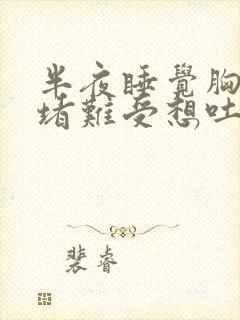 半夜睡覺胸
堵難受想吐
裴睿